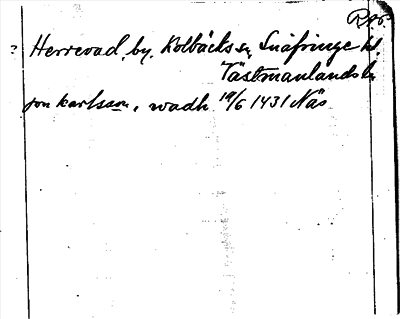 ?
Herrevad, by. Kolbäcks sn, Snäfringe hd,
Västmanlands län
jon karlsson, wadh 19/6 1431 Näs